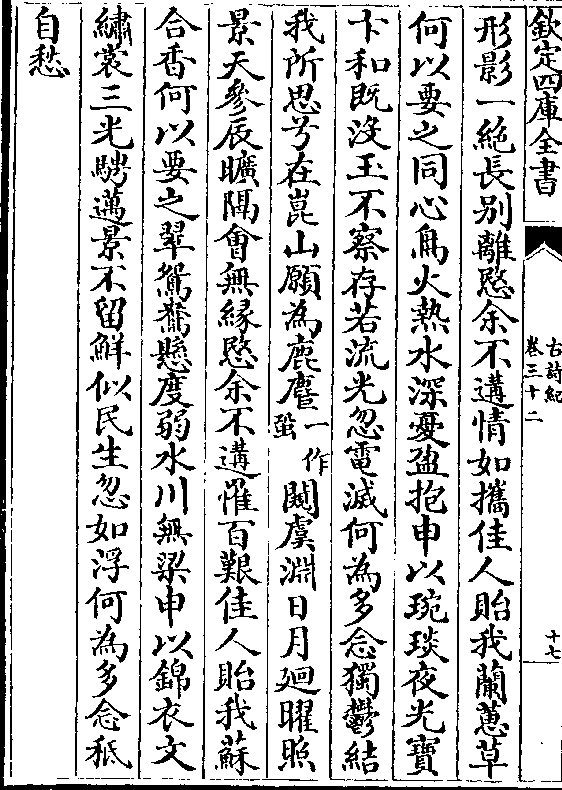 欽定四庫全書
古詩紀
卷三十二
十七
形影一絶長别離愍余不遘情如攜佳人貽我蘭蕙草
何以要之同心鳥火熱水深憂盈抱申以琬琰夜光寳
卞和既没玉不察存若流光忽電滅何為多念獨鬱結
我所思兮在崑山願為鹿麕一作蛩闚虞淵日月廻曜照
景天參辰曠隔㑹無縁愍余不遘罹百艱佳人貽我蘇
合香何以要之翠鴛鴦懸度弱水川無梁申以錦衣文
繡裳三光騁邁景不留鮮似民生忽如浮何為多念秖
自愁